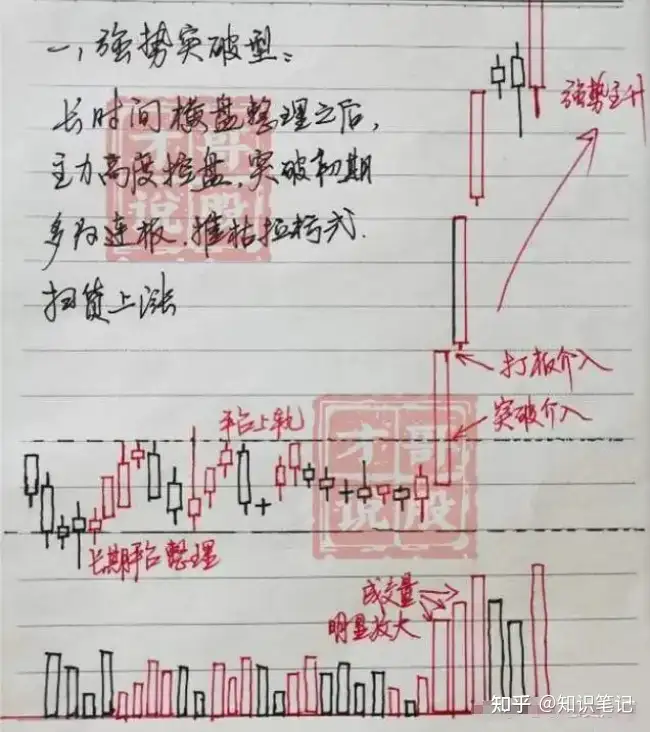 一，强势突破型：
长时间横盘整理之后，
主力高度控盘，突破初期
多为连板，摧枯拉朽式
扫货上涨
强势主升
打板介入
突破介入
平台上轨
长期平台整理
成交量
明显放大
才哥说股
才哥说股
知乎 @知识笔记